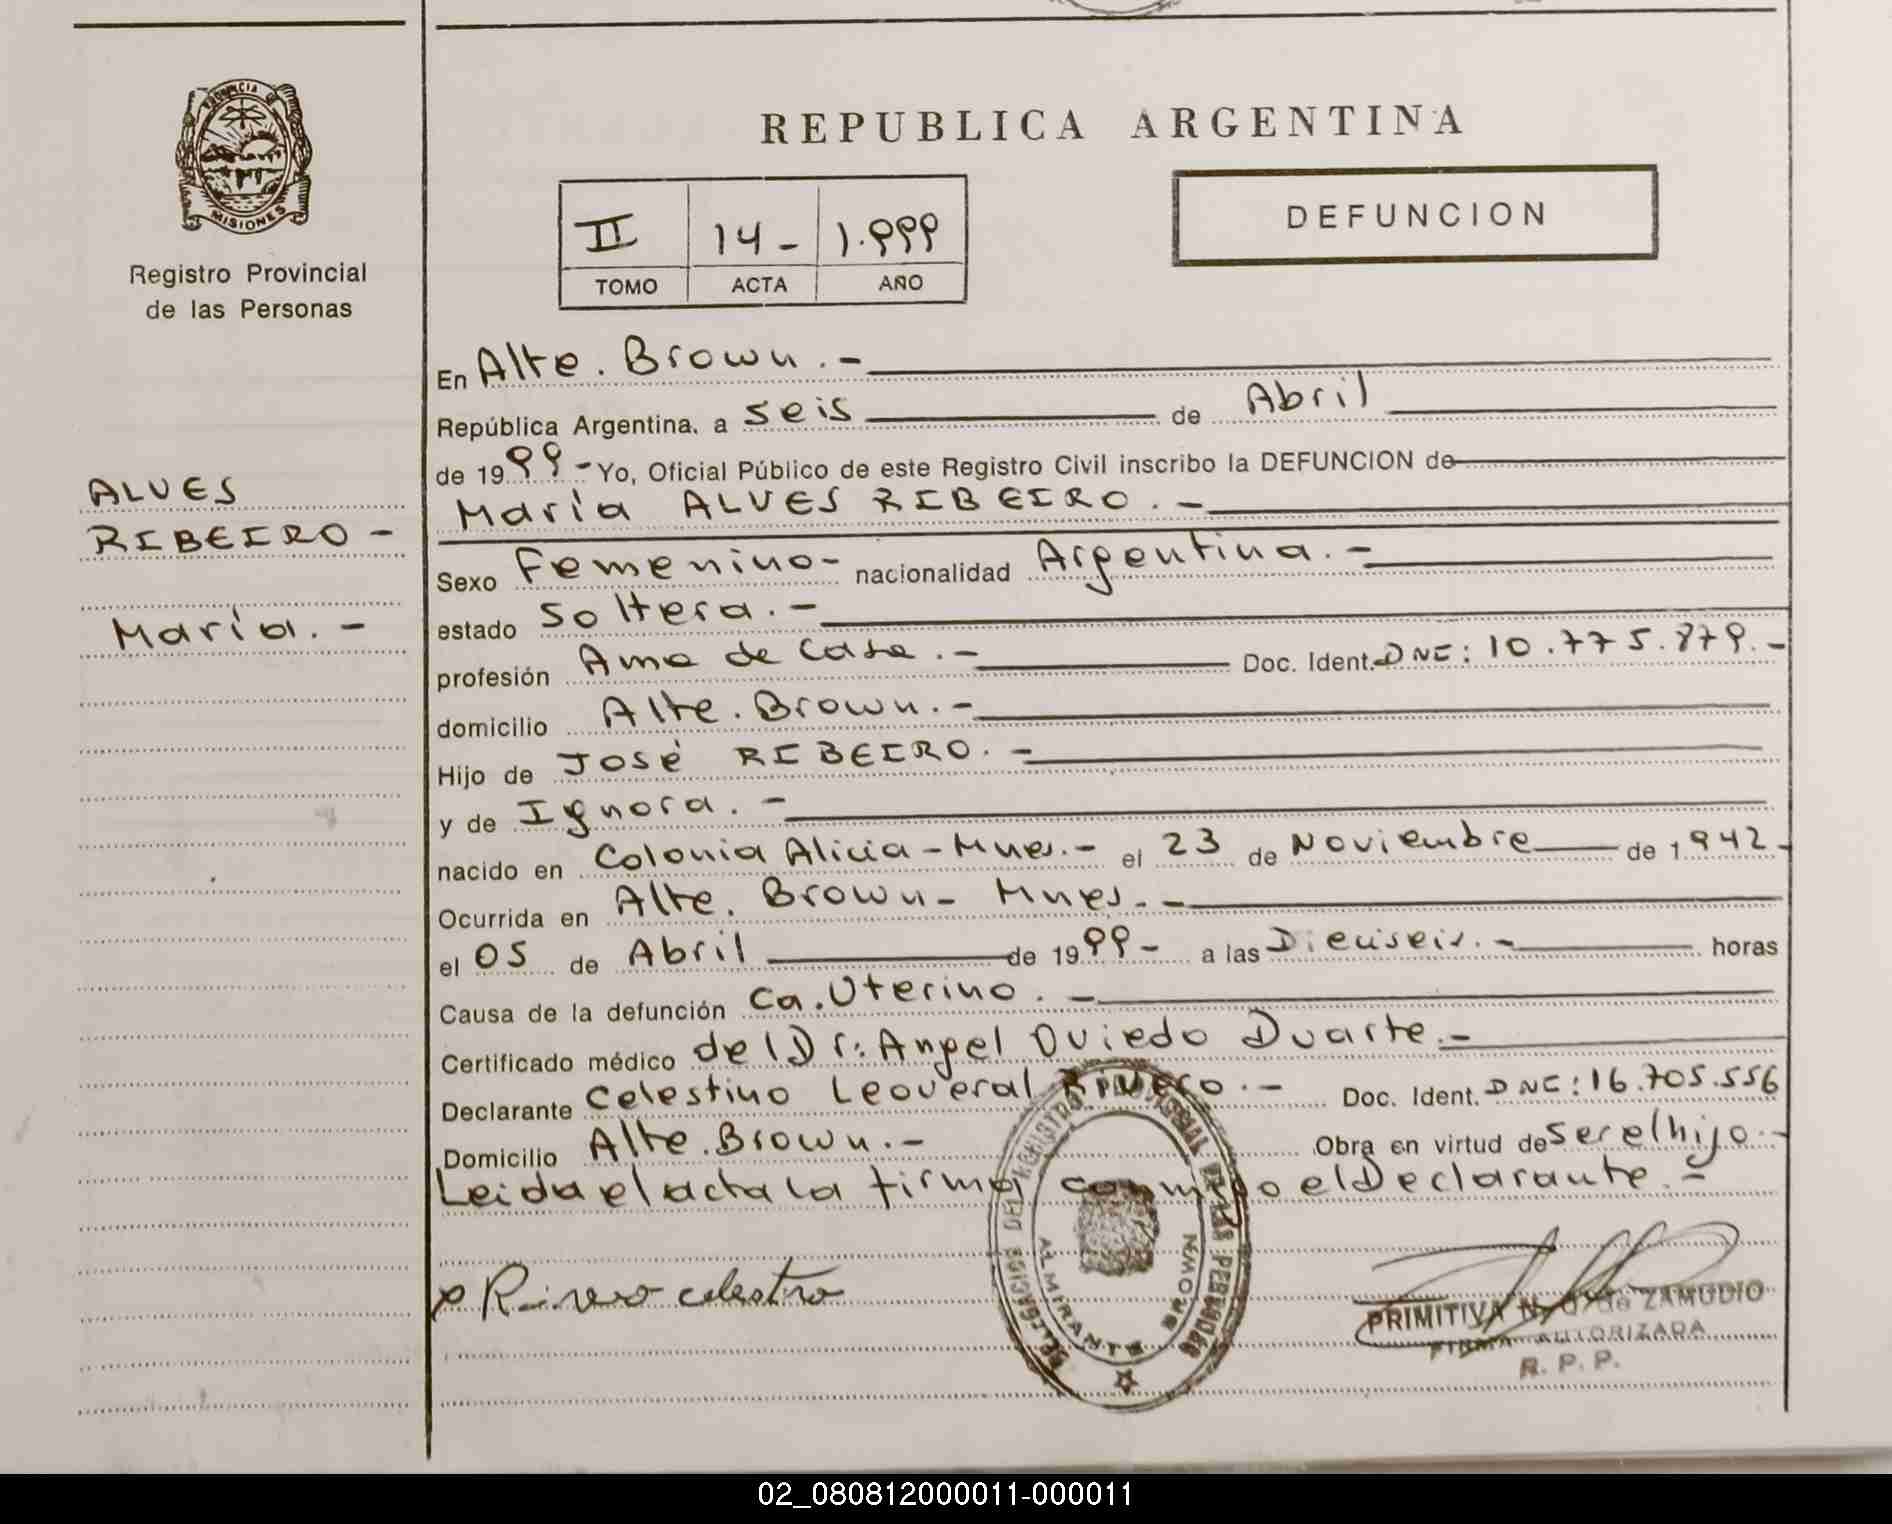 PROVINCIA DE
MISIONES
Registro Provincial
de las Personas
ALVES
RIBEIRO -
María. -
REPUBLICA ARGENTINA
DEFUNCION
II 14- 1.999
TOMO ACTA AÑO
En Alte. Brown.-
República Argentina, a seis de Abril
de 1999- Yo, Oficial Público de este Registro Civil inscribo la DEFUNCION de
María ALVES RIBEIRO.-
Sexo Femenino- nacionalidad Argentina.-
estado Soltera.-
profesión Ama de Casa.- Doc. Ident. DNI: 10.775.879.-
domicilio Alte. Brown.-
Hijo de José RIBEIRO.-
y de Ignora.-
nacido en Colonia Alicia - Mnes.- el 23 de Noviembre de 1942-
Ocurrida en Alte. Brown- Mnes.-
el 05 de Abril de 1999- a las Dieciseis.- horas
Causa de la defunción Ca. Uterino.-
Certificado médico del Dr: Angel Oviedo Duarte.-
Declarante Celestino Leoveral Rivero.- Doc. Ident. DNI: 16.705.556
Domicilio Alte. Brown.- Obra en virtud de ser el hijo.-
Leida el acta la firma conmigo el Declarante.-
Rivero celestino
DELEGACION DEL REGISTRO PROVINCIAL DE LAS PERSONAS
ALMIRANTE BROWN
PRIMITIVA N. de ZAMUDIO
FIRMA AUTORIZADA
R. P. P.
02_080812000011-000011